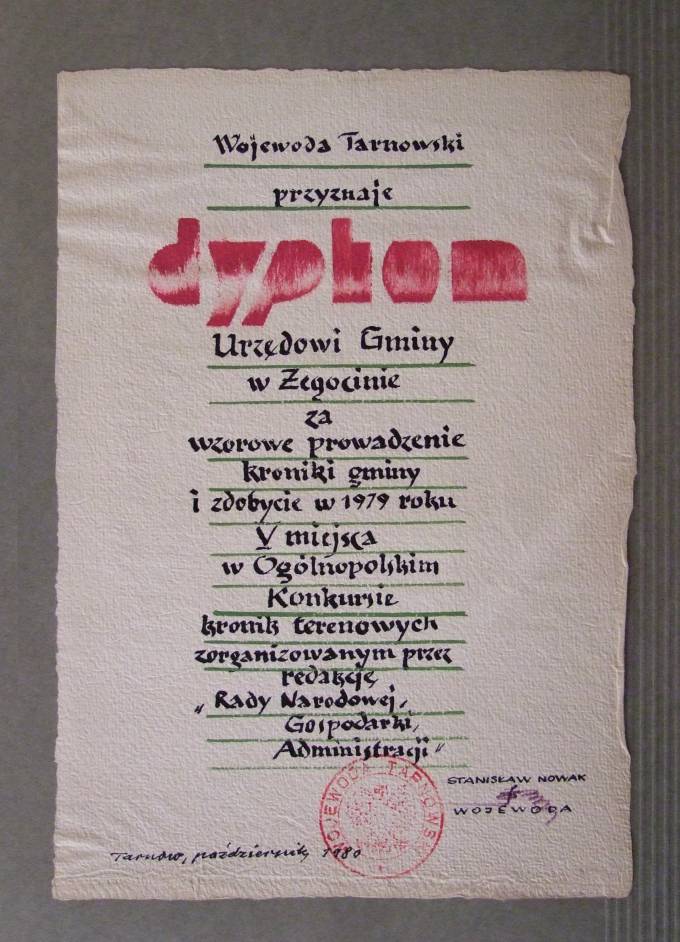 Wojewoda Tarnowski
przyznaje
dyplom
Urzędowi Gminy
w Żegocinie
za
wzorowe prowadzenie
kroniki gminy
i zdobycie w 1979 roku
V miejsca
w Ogólnopolskim
Konkursie
kronik terenowych
zorganizowanym przez
redakcję
„Rady Narodowej,
Gospodarki,
Administracji"
STANISŁAW NOWAK
WOJEWODA
WOJEWODA TARNOWSKI
Tarnów, październik 1980